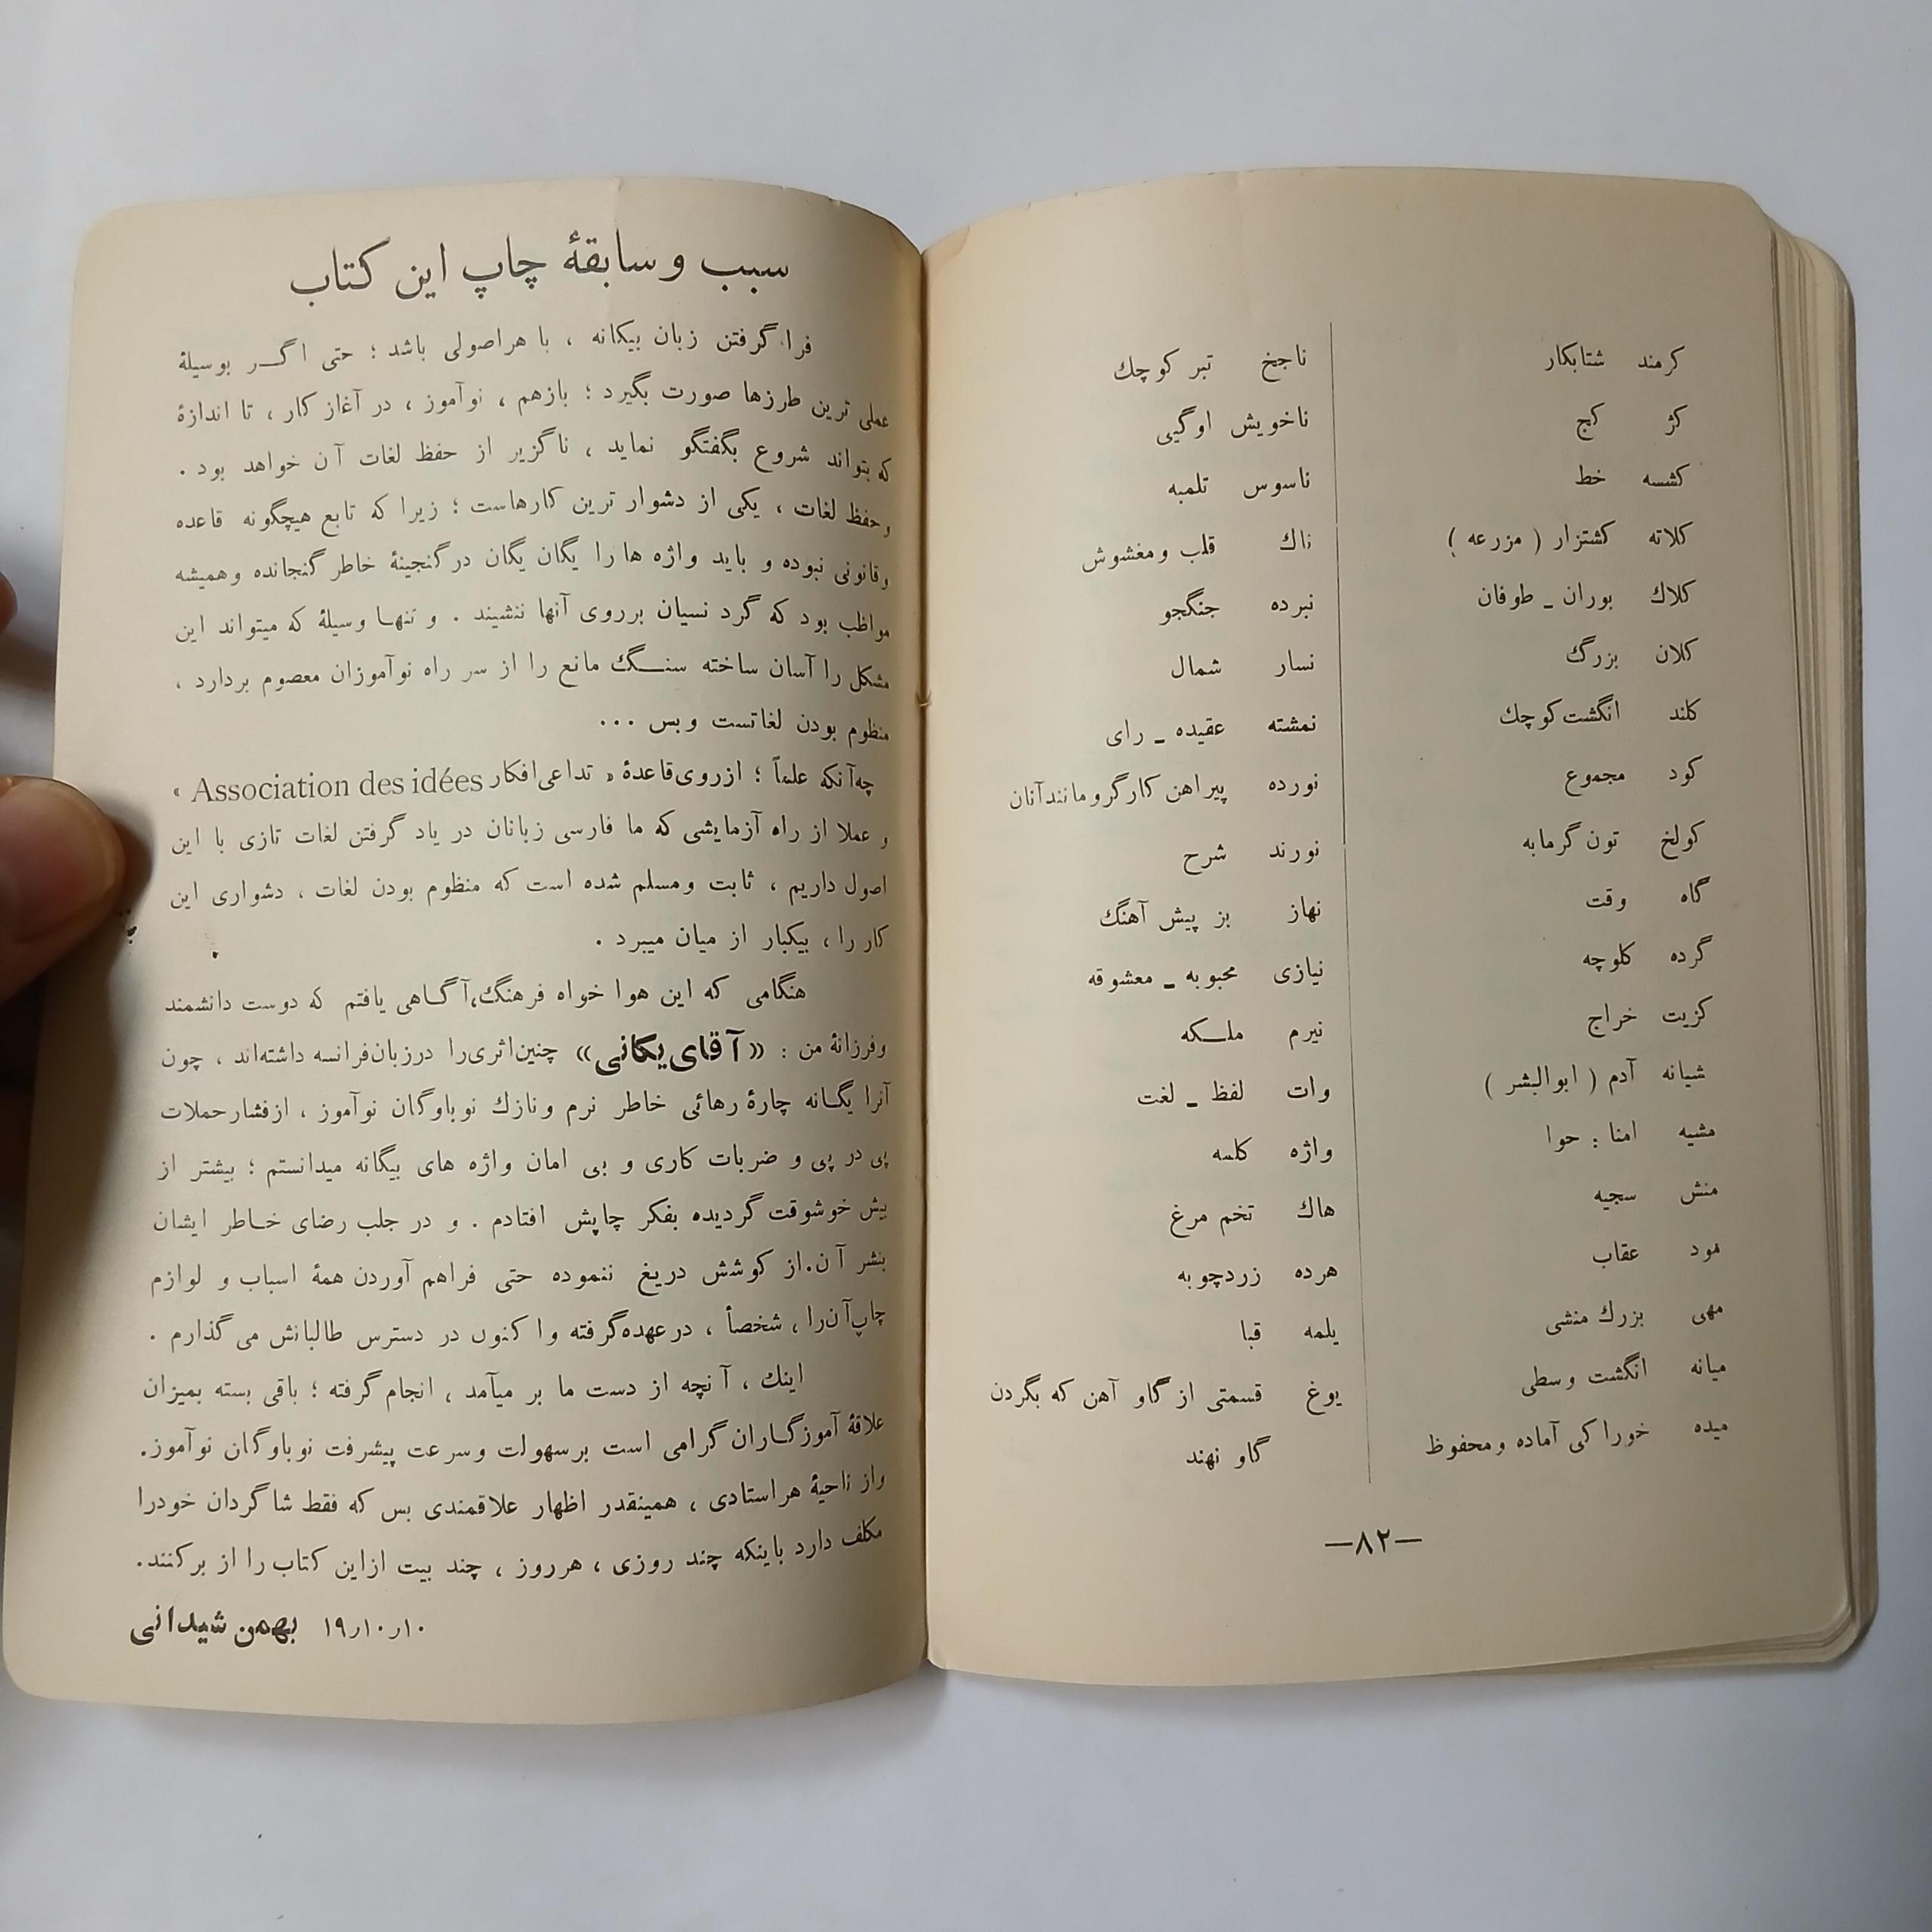 کرمند شتابکار
کژ کج
کشسه خط
کلاته کشتزار ( مزرعه )
کلاك بوران ـ طوفان
کلان بزرگ
کلند انگشت کوچك
کود مجموع
کولخ تون گرمابه
گاه وقت
گرده کلوچه
گزیت خراج
شیانه آدم ( ابوالبشر )
مشیه امنا : حوا
منش سجیه
مود عقاب
مهی بزرك منشی
میانه انگشت وسطی
میده خوراکی آماده ومحفوظ
ناجخ تبر کوچك
ناخویش اوگیی
ناسوس تلمبه
ناك قلب ومغشوش
نبرده جنگجو
نسار شمال
نمشته عقیده ـ رای
نورده پیراهن کارگر ومانند آنان
نورند شرح
نهاز بز پیش آهنگ
نیازی محبوبه ـ معشوقه
نیرم ملـکه
وات لفظ ـ لغت
واژه کلمه
هاك تخم مرغ
هرده زردچوبه
یلمه قبا
یوغ قسمتی از گاو آهن که بگردن
گاو نهند
—۸۲—
سبب و سابقهٔ چاپ این کتاب
فرا گرفتن زبان بیکانه ، با هر اصولی باشد ؛ حتی اگـر بوسیلهٔ
عملی ترین طرزها صورت بگیرد ؛ بازهم ، نوآموز ، در آغاز کار ، تا اندازهٔ
که بتواند شروع بگفتگو نماید ، ناگزیر از حفظ لغات آن خواهد بود .
وحفظ لغات ، یکی از دشوار ترین کارهاست ؛ زیرا که تابع هیچگونه قاعده
وقانونی نبوده و باید واژه ها را یگان یگان در گنجینهٔ خاطر گنجانده وهمیشه
مواظب بود که گرد نسیان بر روی آنها ننشیند . و تنهـا وسیلهٔ که میتواند این
مشکل را آسان ساخته سنـگ مانع را از سر راه نوآموزان معصوم بردارد ،
منظوم بودن لغاتست وبس ...
چه آنکه علماً ؛ از روی قاعدهٔ « تداعی افکار Association des idées »
و عملا از راه آزمایشی که ما فارسی زبانان در یاد گرفتن لغات تازی با این
اصول داریم ، ثابت ومسلم شده است که منظوم بودن لغات ، دشواری این
کار را ، بیکبار از میان میبرد .
هنگامی که این هوا خواه فرهنگ، آگـاهی یافتم که دوست دانشمند
وفرزانهٔ من : «آقای یکانی» چنین اثری را در زبان فرانسه داشته‌اند ، چون
آنرا یگـانه چارهٔ رهائی خاطر نرم ونازك نوباوگان نوآموز ، از فشار حملات
پی در پی و ضربات کاری و بی امان واژه های بیگانه میدانستم ؛ بیشتر از
پیش خوشوقت گردیده بفکر چاپش افتادم . و در جلب رضای خـاطر ایشان
بنشر آن . از کوشش دریغ ننموده حتی فراهم آوردن همهٔ اسباب و لوازم
چاپ آن را ، شخصاً ، در عهده گرفته واکنون در دسترس طالبانش می گذارم .
اینك ، آنچه از دست ما بر میآمد ، انجام گرفته ؛ باقی بسته بمیزان
علاقهٔ آموزگـاران گرامی است بر سهولت وسرعت پیشرفت نوباوگان نوآموز.
واز ناحیهٔ هر استادی ، همینقدر اظهار علاقمندی بس که فقط شاگردان خودرا
مکلف دارد باینکه چند روزی ، هر روز ، چند بیت از این کتاب را از بر کنند.
۱۰ر۱۰ر۱۹ بهمن شیدانی